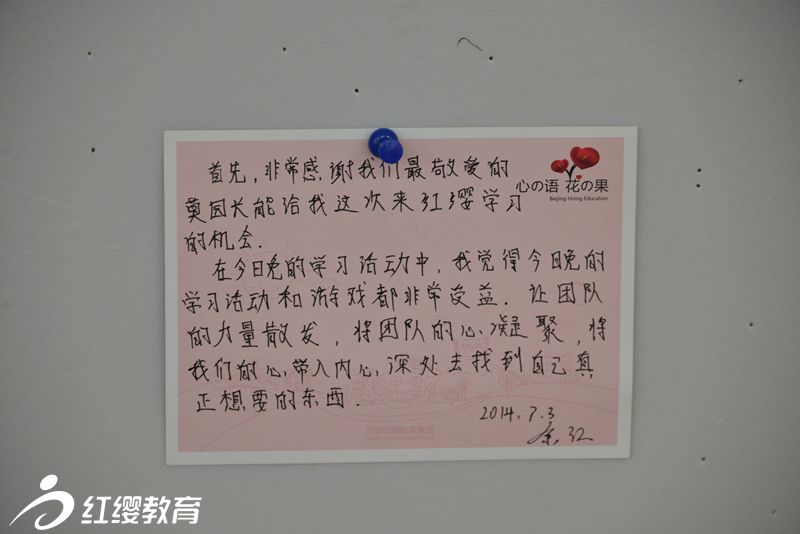 首先，非常感谢我们最敬爱的
莫园长能给我这次来红缨学习
的机会．
心の语 花の果
Beijing Hoing Education
在今日晚的学习活动中，我觉得今日晚的
学习活动和游戏都非常受益．让团队
的力量散发，将团队的心凝聚，将
我们的心带入内心深处去找到自己真
正想要的东西．
2014.7.3
北京红缨教育集团
红缨教育